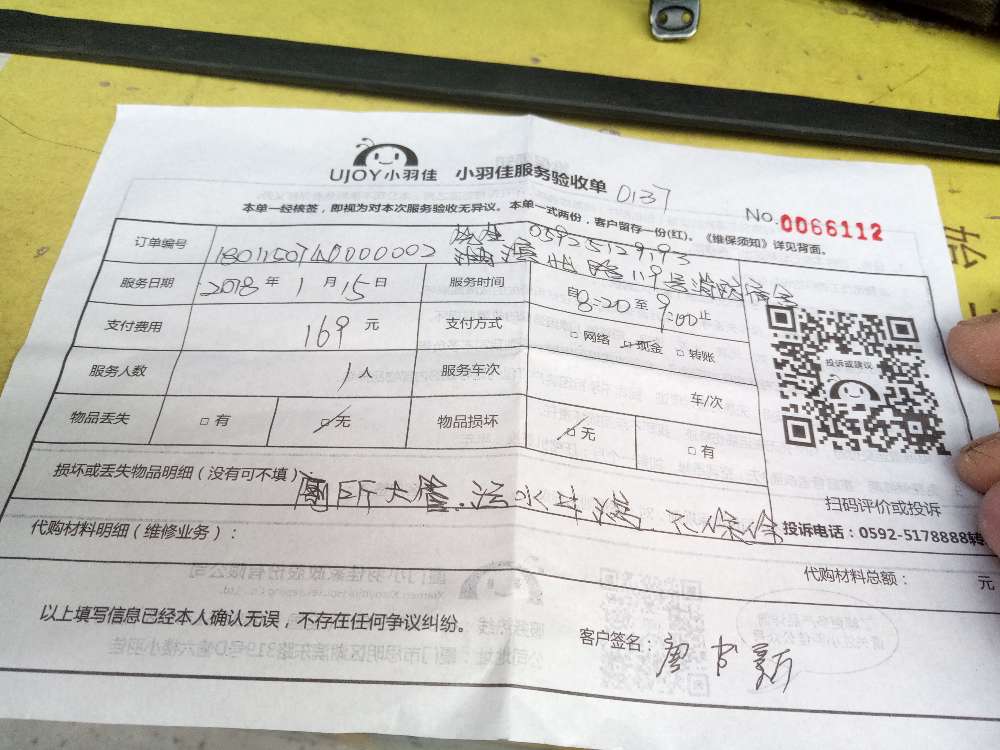 UJOY小羽佳 小羽佳服务验收单 0137
No.0066112
本单一经核签，即视为对本次服务验收无异议。本单一式两份，客户留存一份(红)。《维保须知》详见背面。
订单编号 1801150740000002 05925129193
路119号消防宿舍
服务日期 2018年1月15日 服务时间 自8:20至9:00止
支付费用 169元 支付方式 □网络 □现金 □转账
服务人数 人 服务车次 车/次
物品丢失 □有 □无 物品损坏 □无 □有
投诉或建议
扫码评价或投诉
损坏或丢失物品明细（没有可不填）
厕所大管.污水井满 不保修
投诉电话：0592-5178888转
代购材料明细（维修业务）：
代购材料总额： 元
以上填写信息已经本人确认无误，不存在任何争议纠纷。
客户签名：